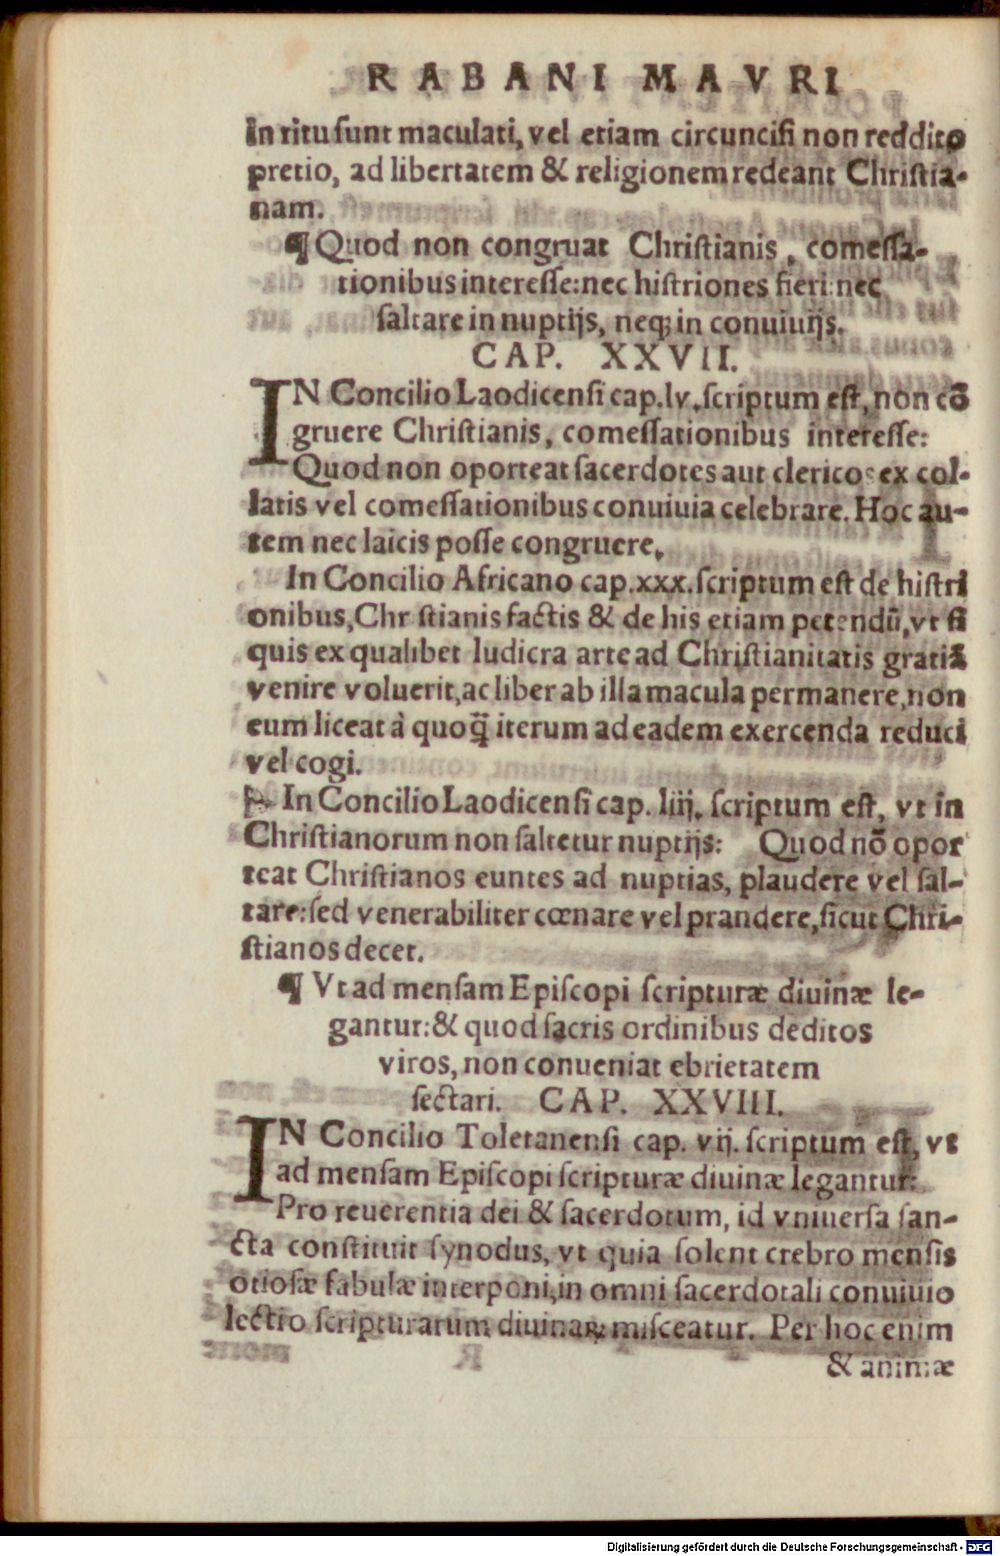 RABANI MAVRI
in ritu ſunt maculati, vel etiam circunciſi non reddito
pretio, ad libertatem & religionem redeant Chriſtia-
nam.
¶ Quod non congruat Chriſtianis, comeſſa-
tionibus intereſſe: nec hiſtriones fieri: nec
ſaltare in nuptijs, neq; in conuiuijs.
CAP. XXVII.
IN Concilio Laodicenſi cap. lv. ſcriptum eſt, non cõ
gruere Chriſtianis, comeſſationibus intereſſe:
Quod non oporteat ſacerdotes aut clericos ex col-
latis vel comeſſationibus conuiuia celebrare. Hoc au-
tem nec laicis poſſe congruere.
In Concilio Africano cap. xxx. ſcriptum eſt de hiſtri
onibus, Chr ſtianis factis & de his etiam petendũ, vt ſi
quis ex qualibet ludicra arte ad Chriſtianitatis gratiã
venire voluerit, ac liber ab illa macula permanere, non
eum liceat à quoq̃ iterum ad eadem exercenda reduci
vel cogi.
In Concilio Laodicenſi cap. liij. ſcriptum eſt, vt in
Chriſtianorum non ſaltetur nuptijs: Quod nõ opor
teat Chriſtianos euntes ad nuptias, plaudere vel ſal-
tare: ſed venerabiliter cœnare vel prandere, ſicut Chri-
ſtianos decet.
¶ Vt ad menſam Epiſcopi ſcripturæ diuinæ le-
gantur: & quod ſacris ordinibus deditos
viros, non conueniat ebrietatem
ſectari. CAP. XXVIII.
IN Concilio Toletanenſi cap. vij. ſcriptum eſt, vt
ad menſam Epiſcopi ſcripturæ diuinæ legantur:
Pro reuerentia dei & ſacerdotum, id vniuerſa ſan-
cta conſtituit ſynodus, vt quia ſolent crebro menſis
otioſæ fabulæ interponi, in omni ſacerdotali conuiuio
lectio ſcripturarum diuinaꝝ miſceatur. Per hoc enim
& animæ
Digitalisierung gefördert durch die Deutsche Forschungsgemeinschaft - DFG